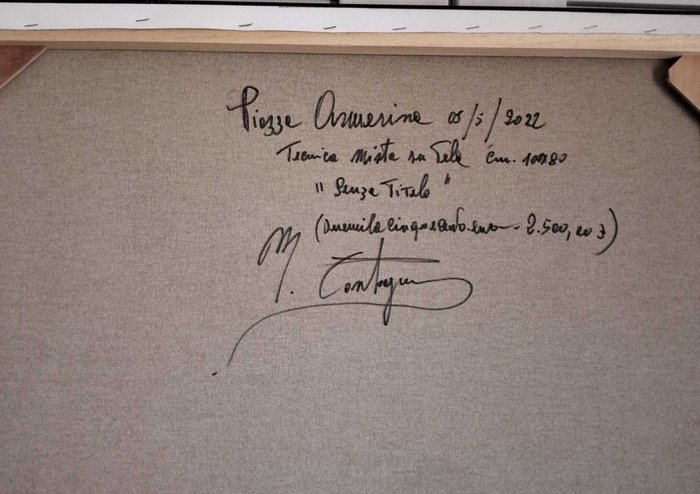 Piazza Armerina 05/5/2022
Tecnica mista su Tela cm. 100x80
"Senza Titolo"
(Duemilacinquecento euro - 2.500,00
M.